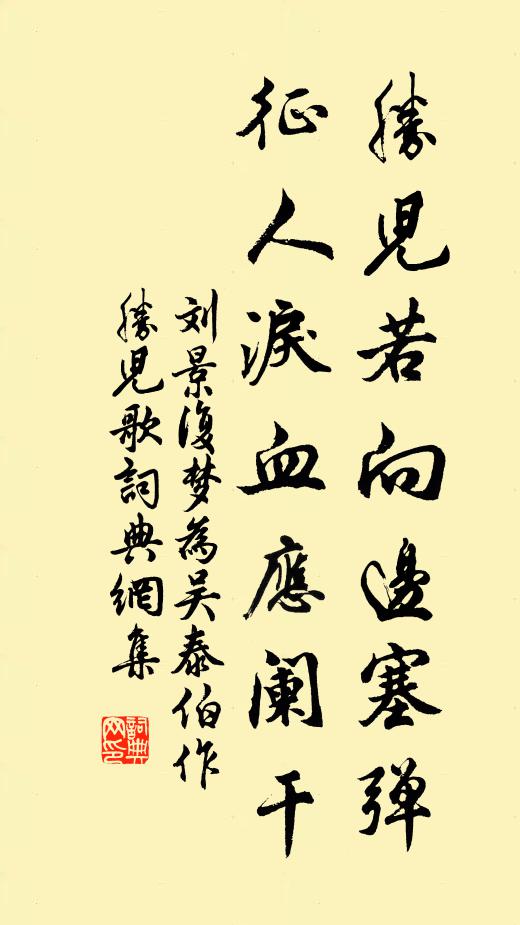 勝児若向邊塞彈
征人淚血應闌干
刘景復梦為吴泰伯作
勝児歌詞典網集
詞典网印